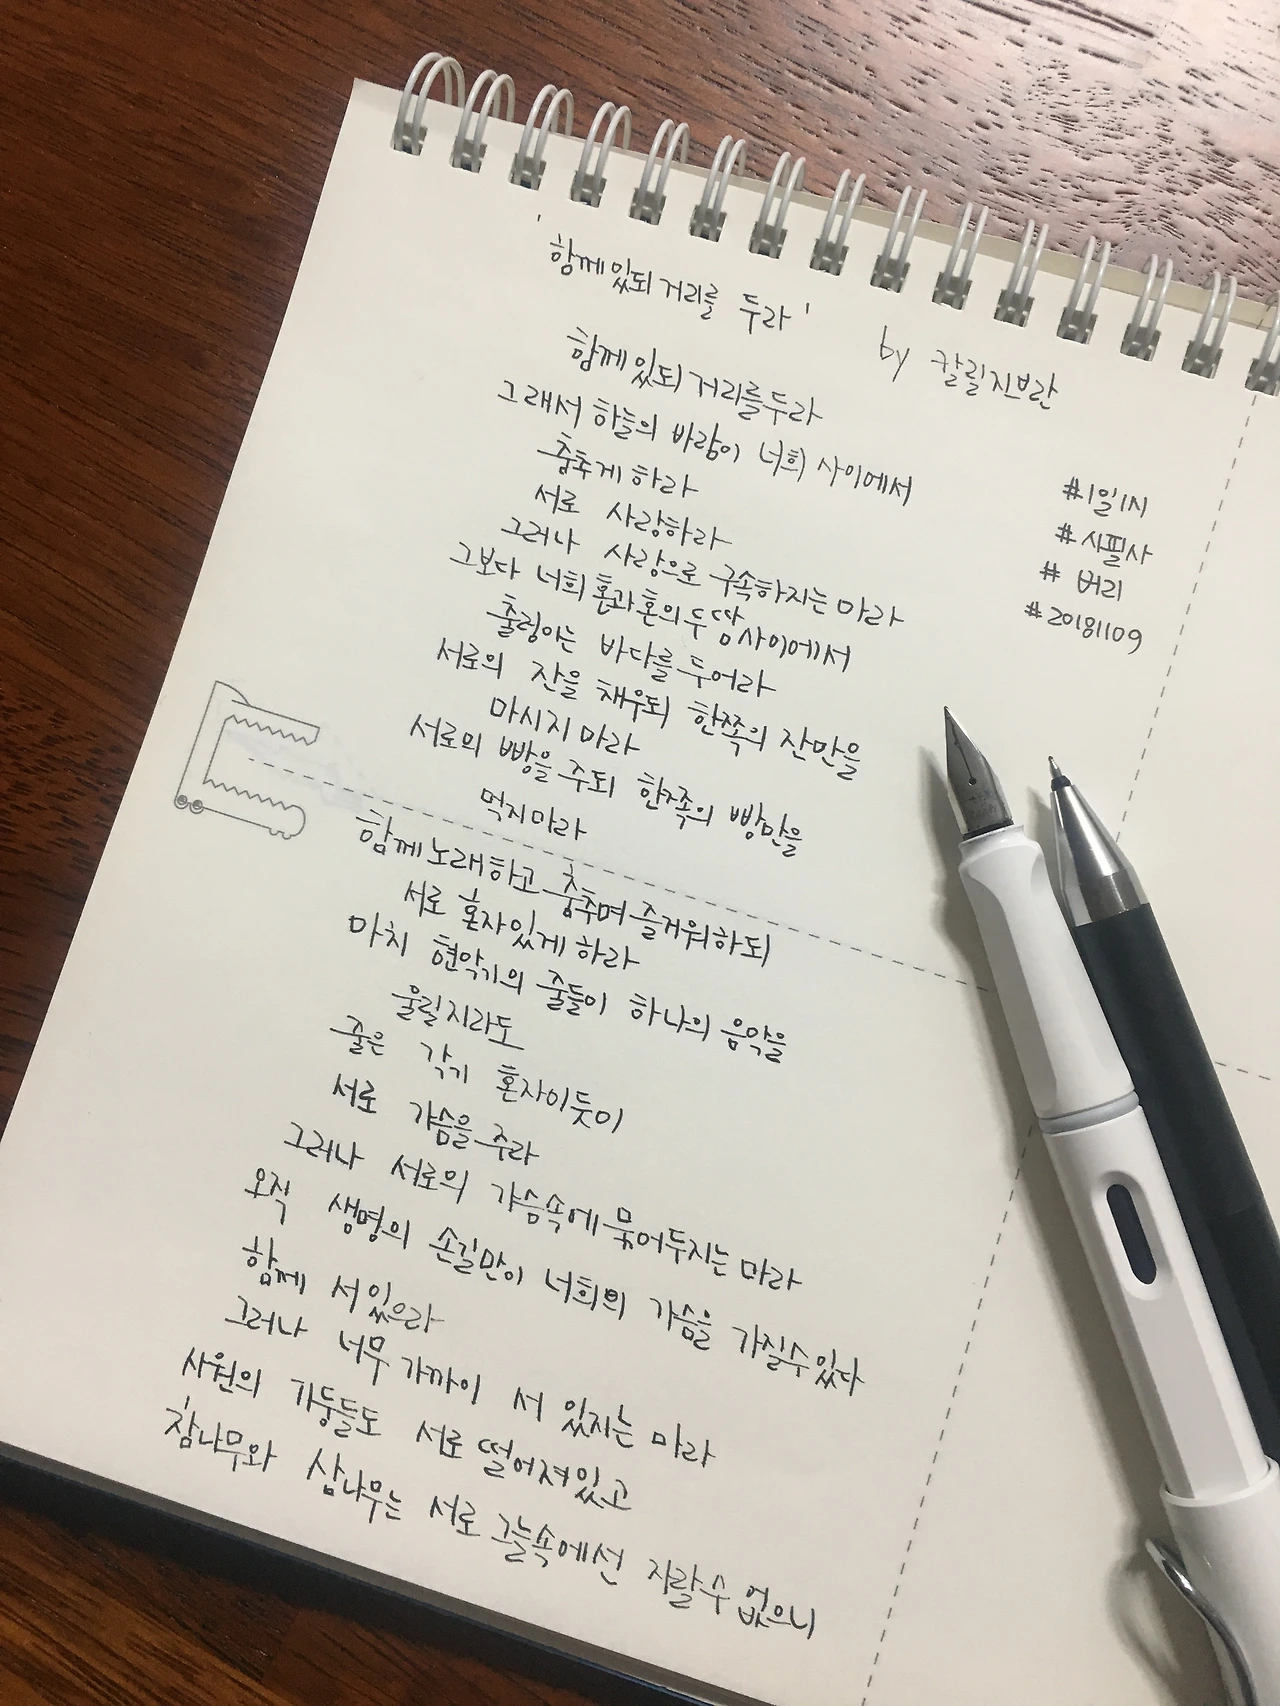 '함께있되 거리를 두라' by 칼릴지브란
함께 있되 거리를두라
그래서 하늘의 바람이 너희 사이에서
춤추게 하라
서로 사랑하라
그러나 사랑으로 구속하지는 마라
그보다 너희 혼과 혼의 두 땀사이에서
출렁이는 바다를 두어라
서로의 잔을 채우되 한쪽의 잔만을
마시지 마라
서로의 빵을 주되 한쪽의 빵만을
먹지마라
함께 노래하고 춤추며 즐거워하되
서로 혼자있게 하라
마치 현악기의 줄들이 하나의 음악을
울릴지라도
줄은 각기 혼자이듯이
서로 가슴을 주라
그러나 서로의 가슴속에 묶어두지는 마라
오직 생명의 손길만이 너희의 가슴을 가질수있다
함께 서 있으라
그러나 너무 가까이 서 있지는 마라
사원의 기둥들도 서로 떨어져있고
참나무와 삼나무는 서로 그늘속에선 자랄수 없으니
#1일1시
#시필사
# 버리
#20181109